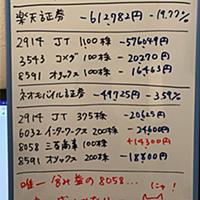 楽天証券 -612782円 -19.77%
2914 JT 1100株 -576049円
3543 コメダ 100株 -20270円
8591 オリックス 100株 -16463円
ネオモバイル証券 -49725円 -3.59%
2914 JT 375株 -20625円
6032 インターワークス 200株 -24600円
8058 三菱商事 100株 +14300円
8591 オリックス 200株 -18800円
唯一含み益の8058…